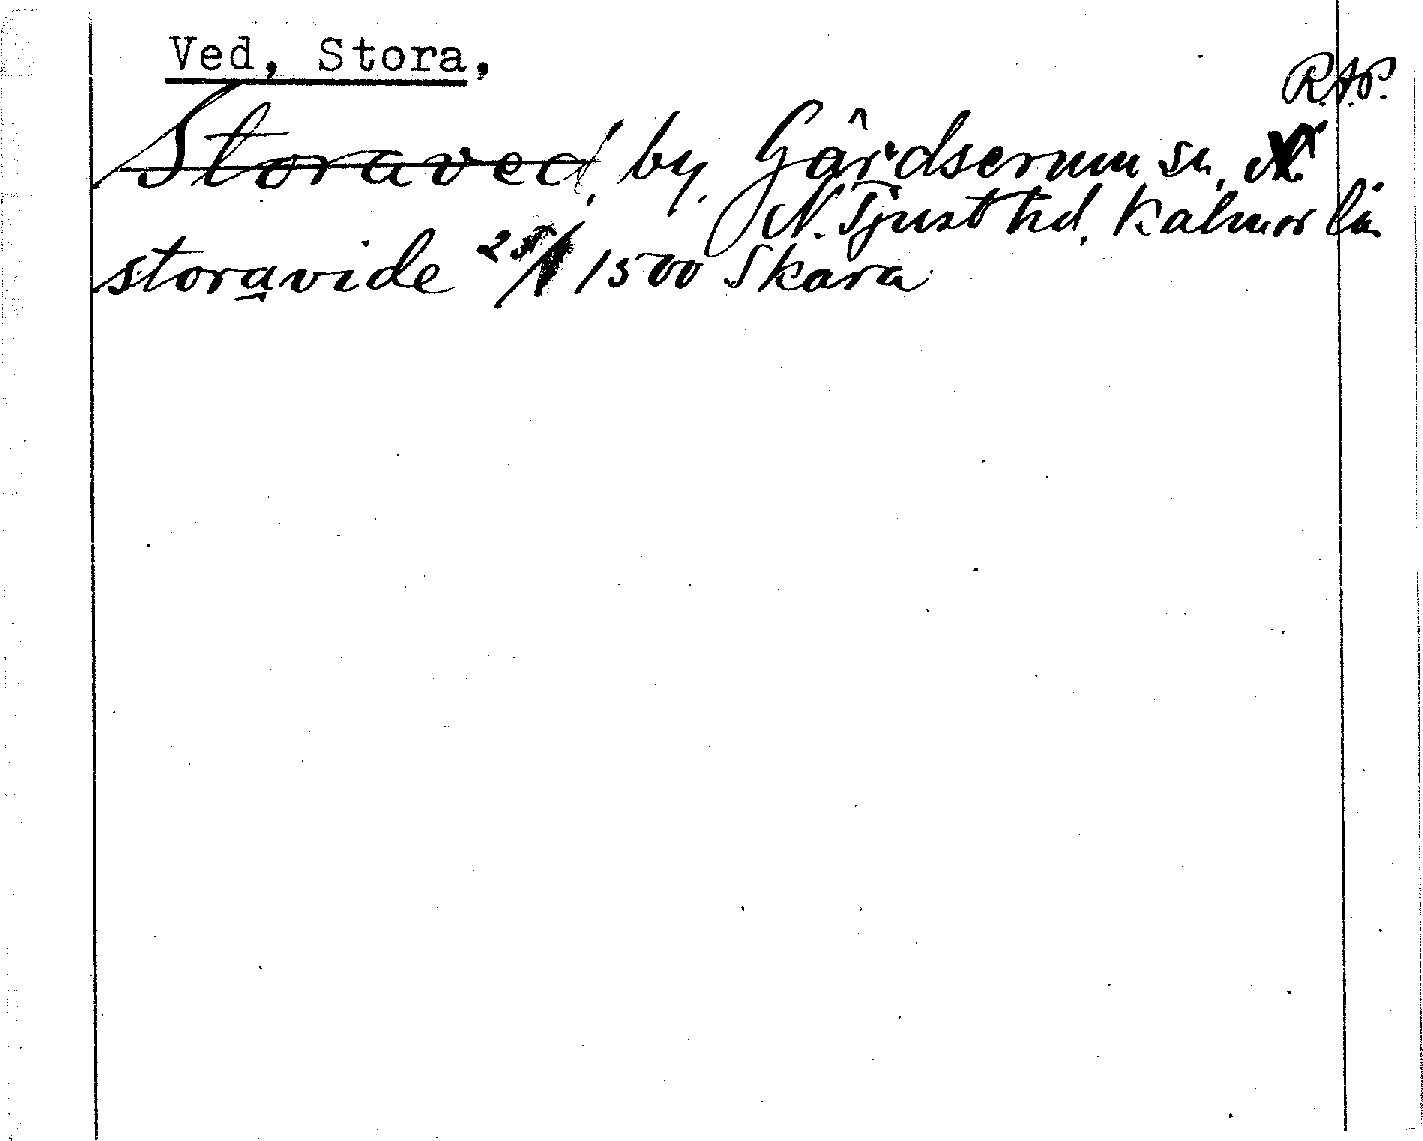 Ved, Stora,
R.A.P.
Storaved, by, Gårdserum sn.
N. Tjust hd. Kalmar län
storavide 25/1 1500 Skara